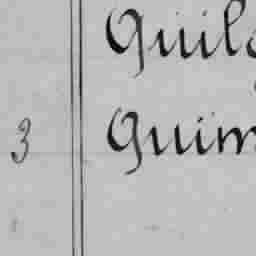 Guil
3 Guim